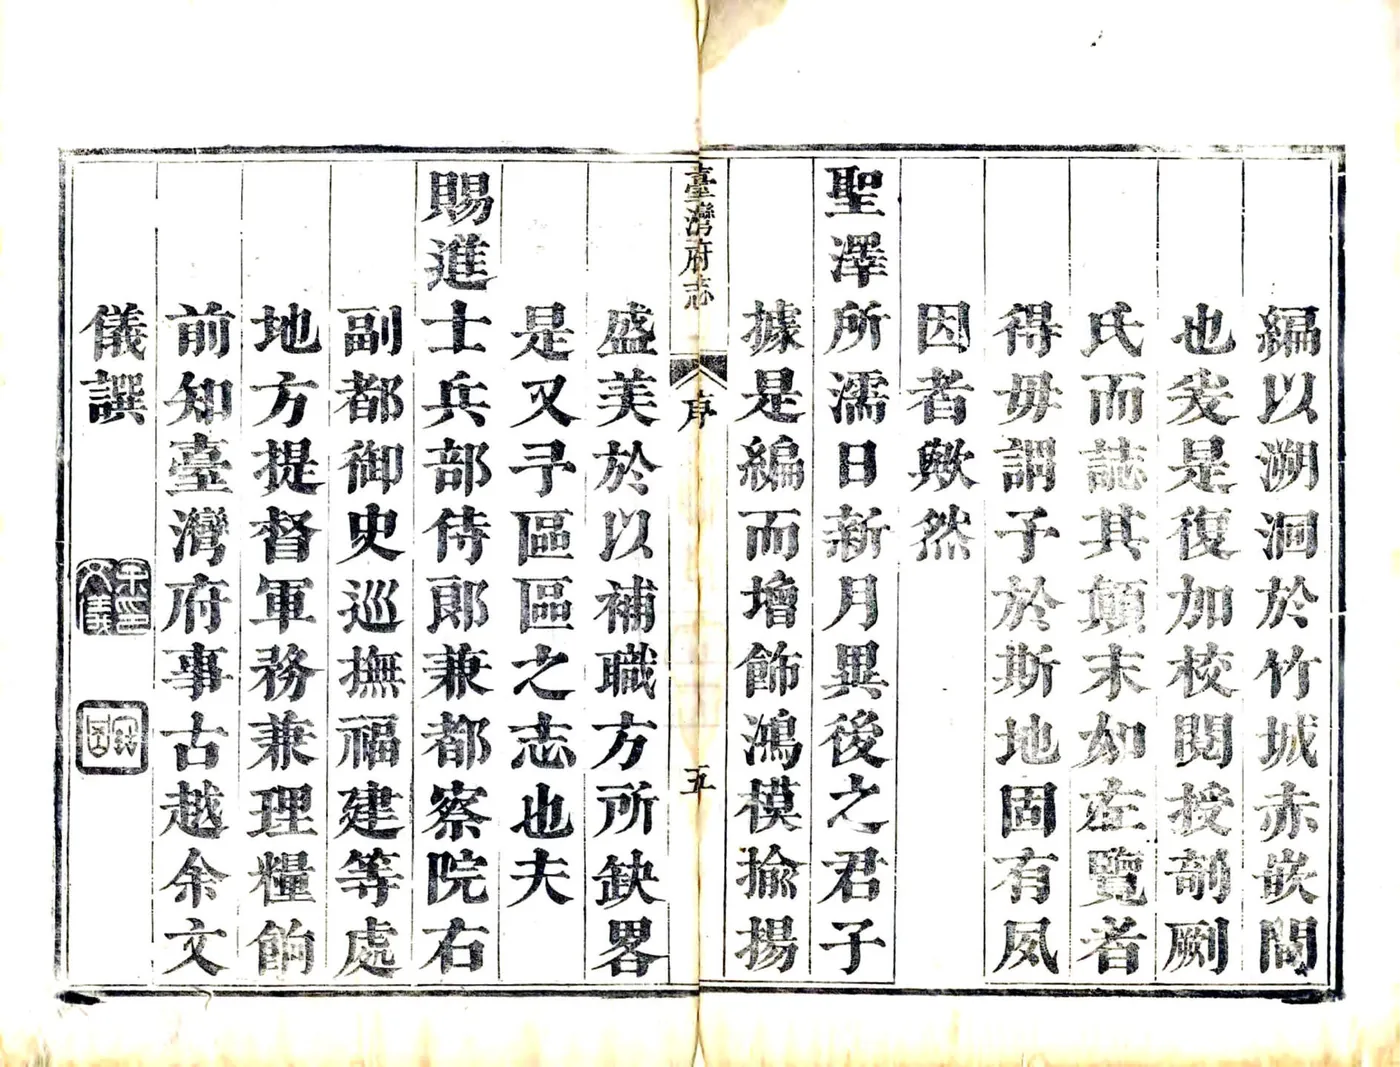 編以溯洄於竹城赤嵌間
也爰是復加校閱授剞劂
氏而誌其顛末如左覽者
得毋謂予於斯地固有夙
因者歟然
聖澤所濡日新月異後之君子
據是編而增飾鴻模揄揚
臺灣府志
序
五
盛美於以補職方所缺畧
是又予區區之志也夫
賜進士兵部侍郎兼都察院右
副都御史巡撫福建等處
地方提督軍務兼理糧餉
前知臺灣府事古越余文
儀譔